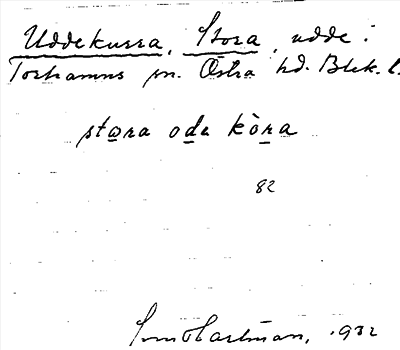 Uddekurra, Stora, udde i
Torhamns sn. Östra hd. Blek. l.
stɷra odɘ kòra
82
Sven Hartman, 1932